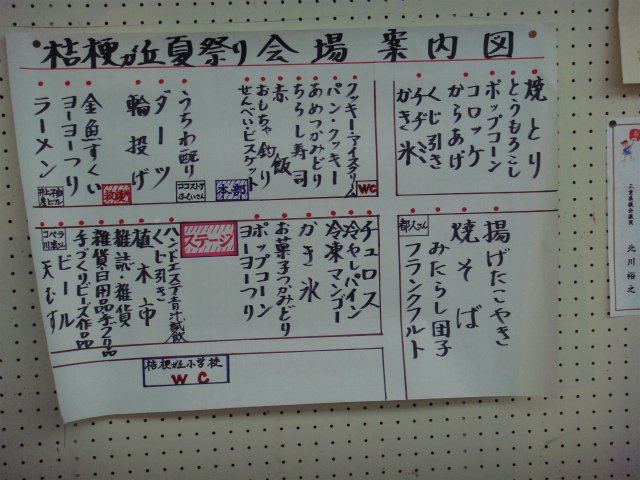 桔梗が丘夏祭り会場案内図
焼とり
とうもろこし
ポップコーン
コロッケ
からあげ
くじ引き
チヂミ
かき氷
クッキー・アイスクリーム
WC
パン・クッキー
あめつかみどり
ちらし寿司
赤飯
おもちゃ釣り
せんべい・ビスケット
本部
うちわ配り
ダーツ
輪投げ
金魚すくい
ヨーヨーつり
ラーメン
都人さん
揚げたこやき
焼そば
みたらし団子
フランクフルト
チュロス
冷やしパイン
冷凍マンゴー
かき氷
お菓子つかみどり
ポップコーン
ヨーヨーつり
ステージ
ハンドエステ・青汁試飲
くじ引き
植木市
雑誌・雑貨
雑貨日用品手フリ品
手づくりビーズ作品
ビール
天むす
桔梗が丘小学校
WC
北川裕之